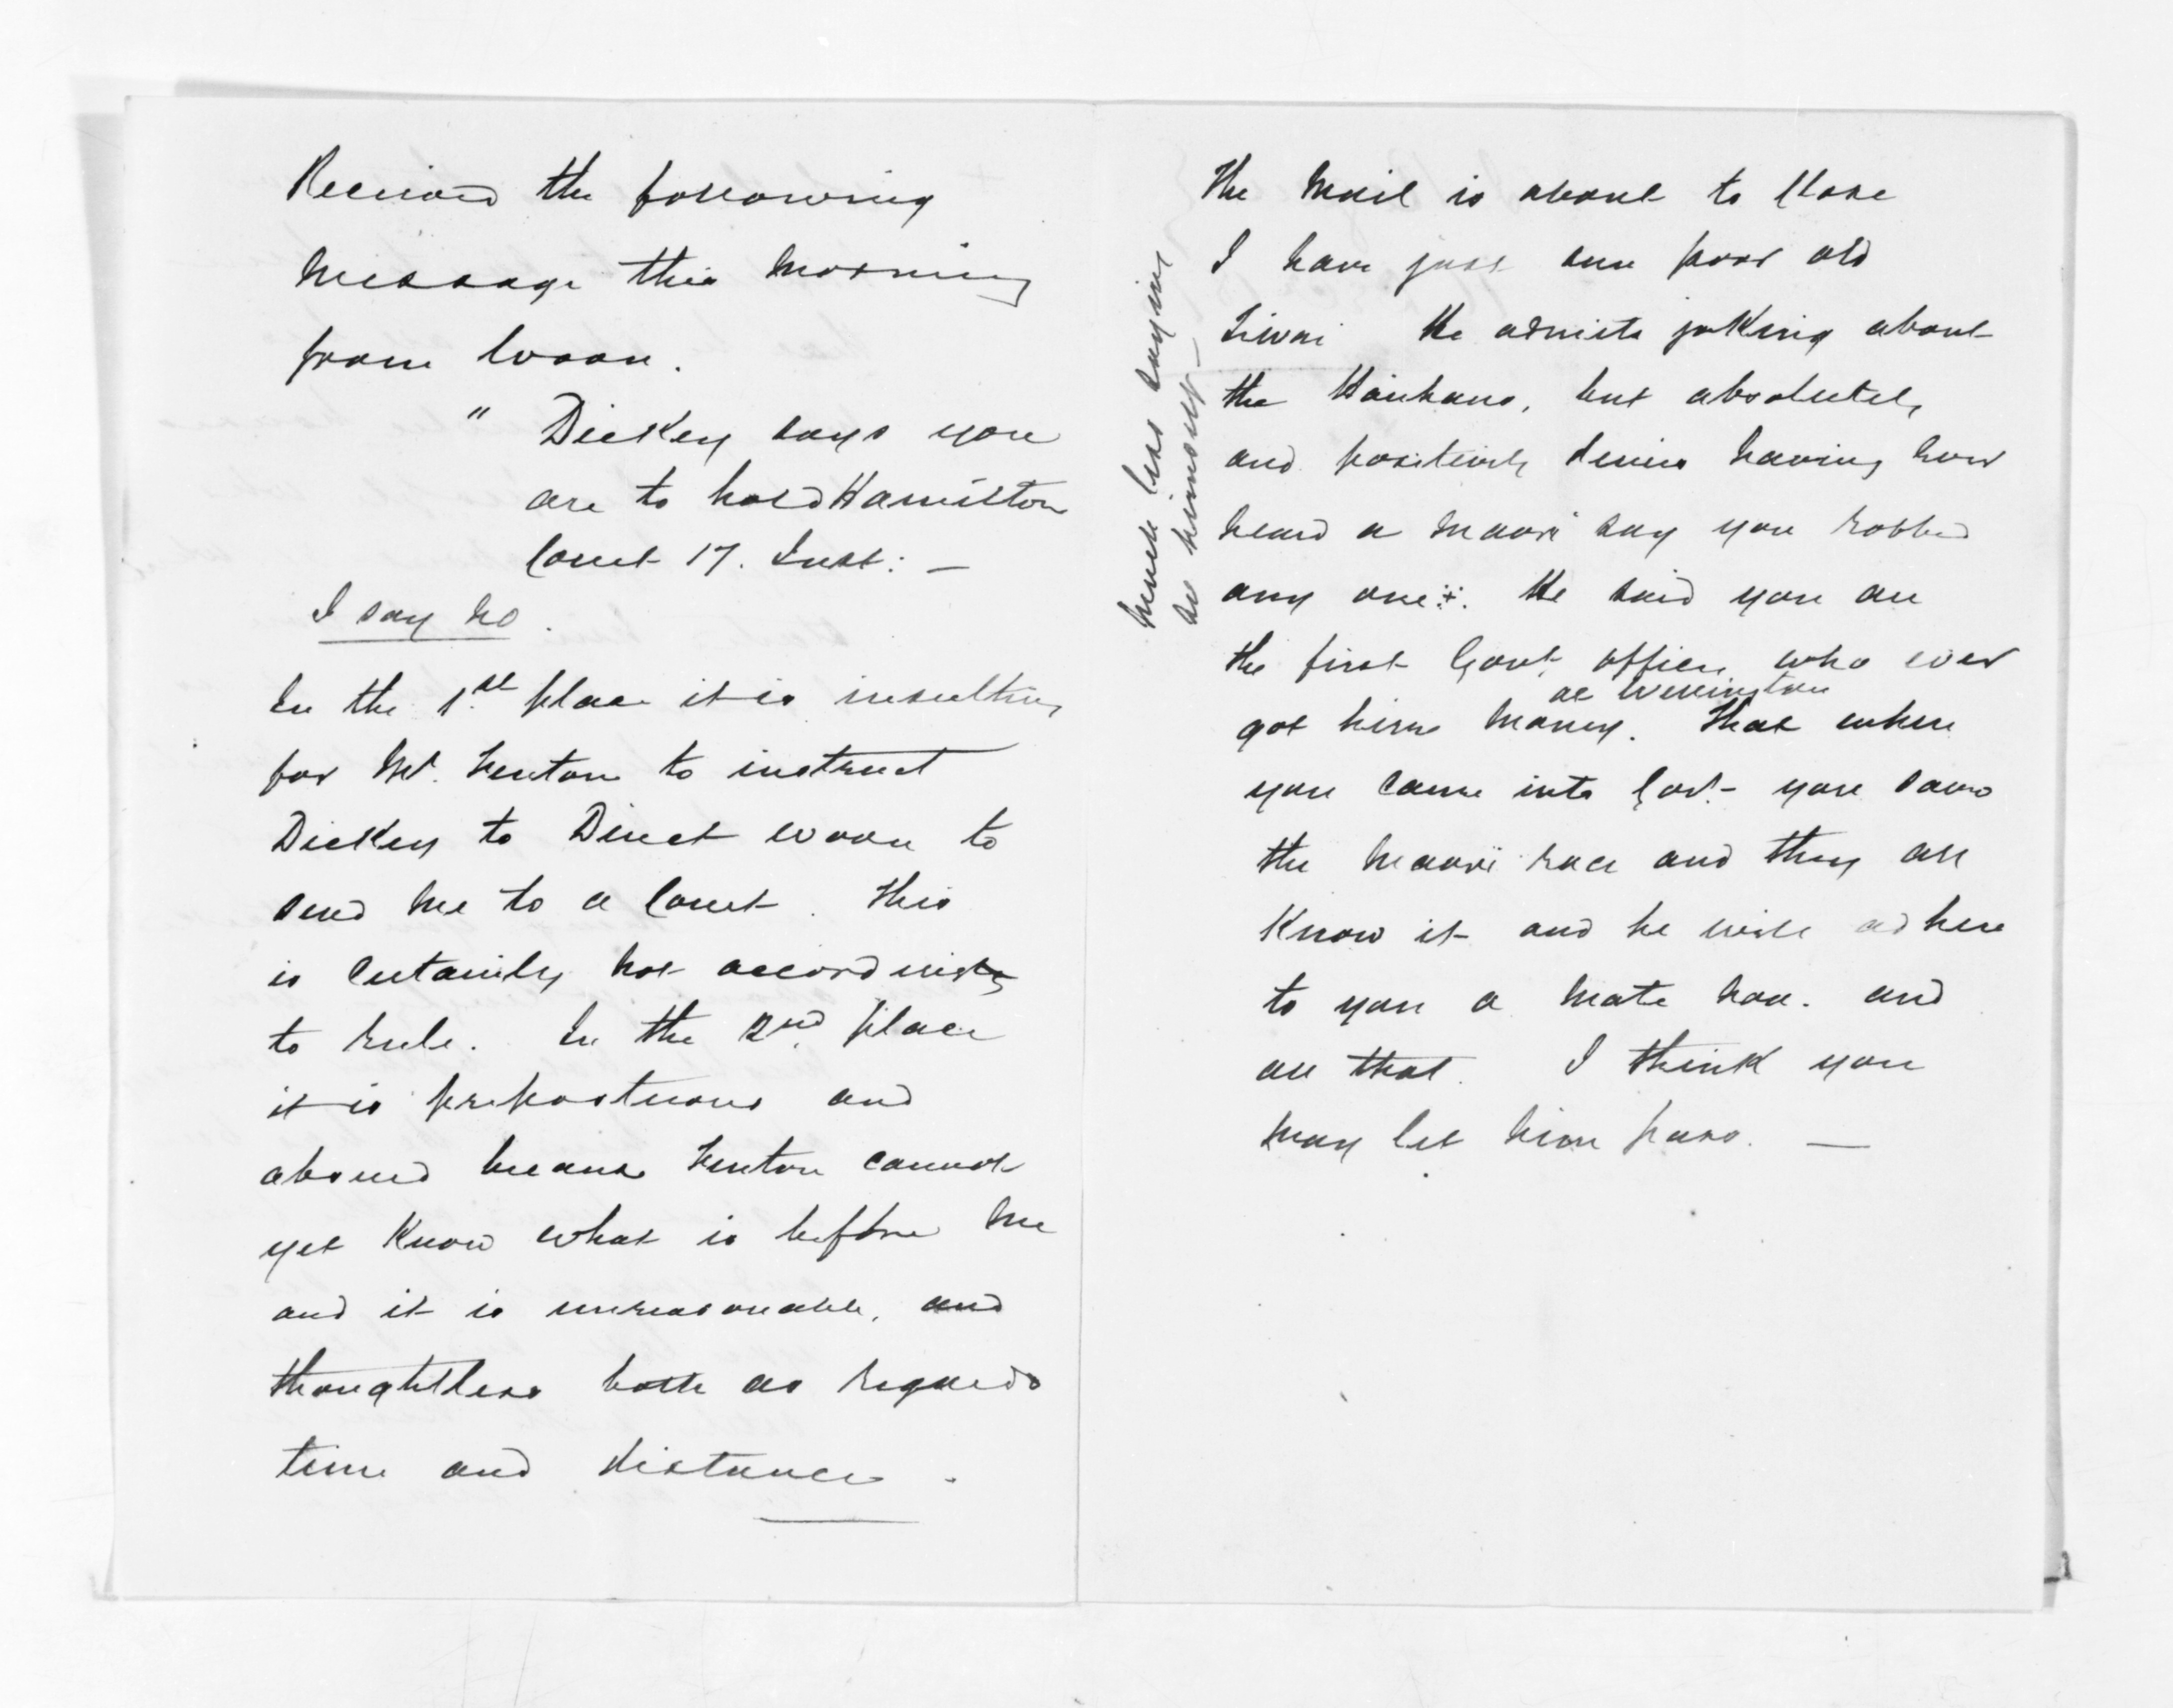 Received the following
message this morning
from Woon.
" Dickey says you
are to hold Hamilton
Court 17. Inst: —
I say no.
In the 1st place it is insulting
for Mr. Fenton to instruct
Dickey to Direct Woon to
send me to a Court. This
is certainly not according
to rule. In the 2nd place
it is preposterous and
absurd because Fenton cannot
yet Know what is before me
and it is unreasonable, and
thoughtless both as regards
time and distance.
The mail is about to close
I have just seen poor old
He admits joking about
the Hauhaus, but absolutely
and positively denies having ever
heard a Maori say you robbed
any one+. He said you are
the first Govt. officer who ever
at Wellington
got him money. That when
you came into Govt. - you saved
the Maori race and they all
Know it and he will adhere
to you a mate noa. and
all that. I think you
may let him pass. —
much less saying
so himself —